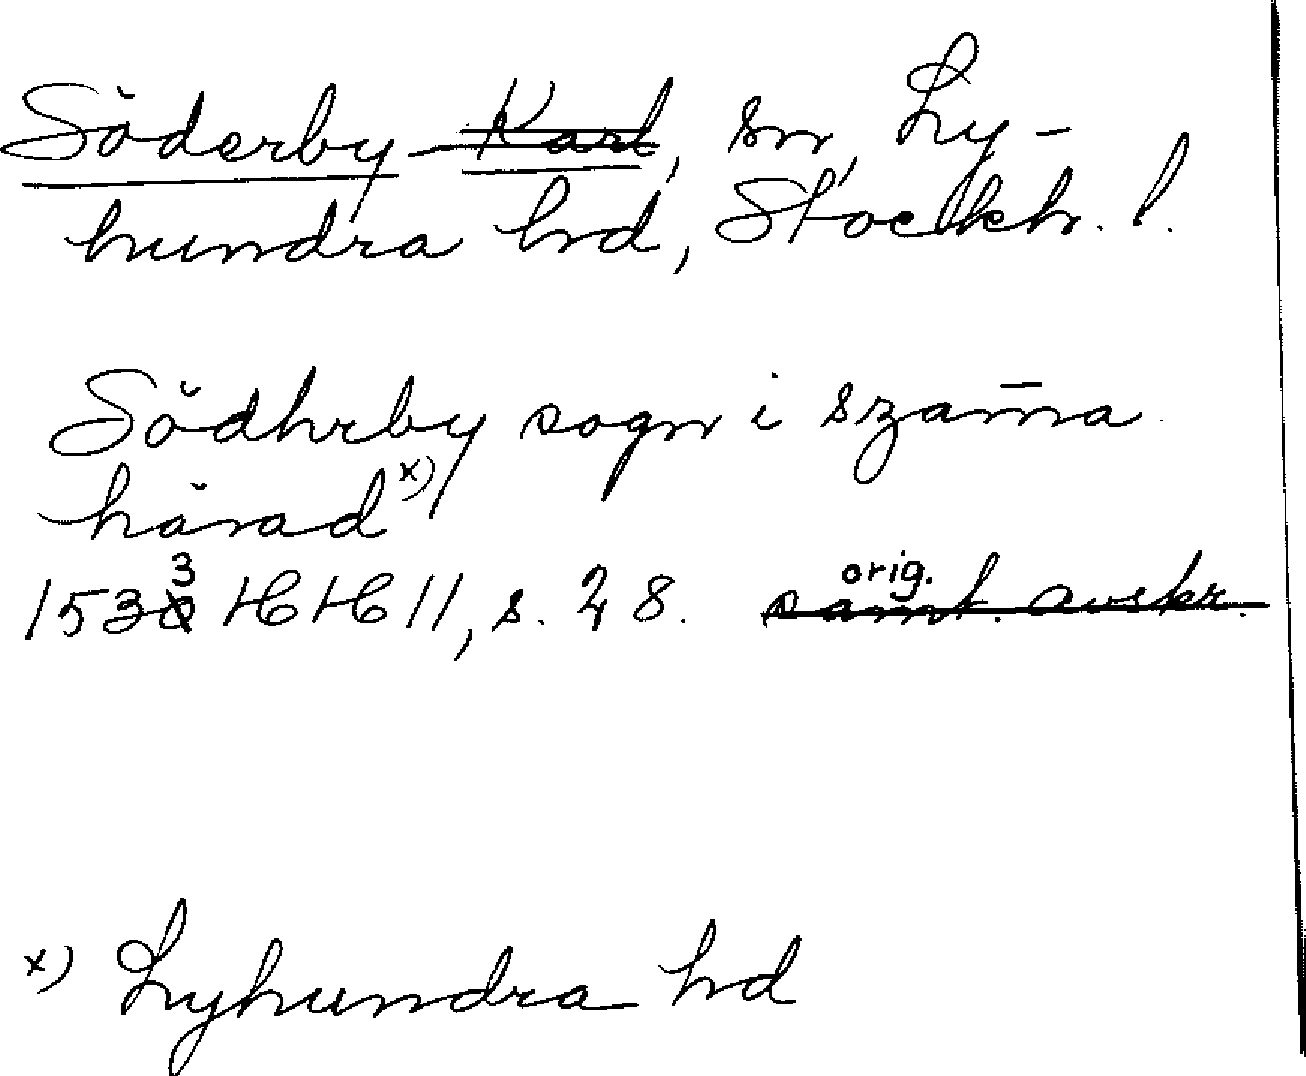 Söderby-Karl, sn, Ly-
hundra hd, Stockh. l.
Södhrby sogn i szam̄a
härad x)
1533 HH 11, s. 28. orig. samt. avskr.
x) Lyhundra hd